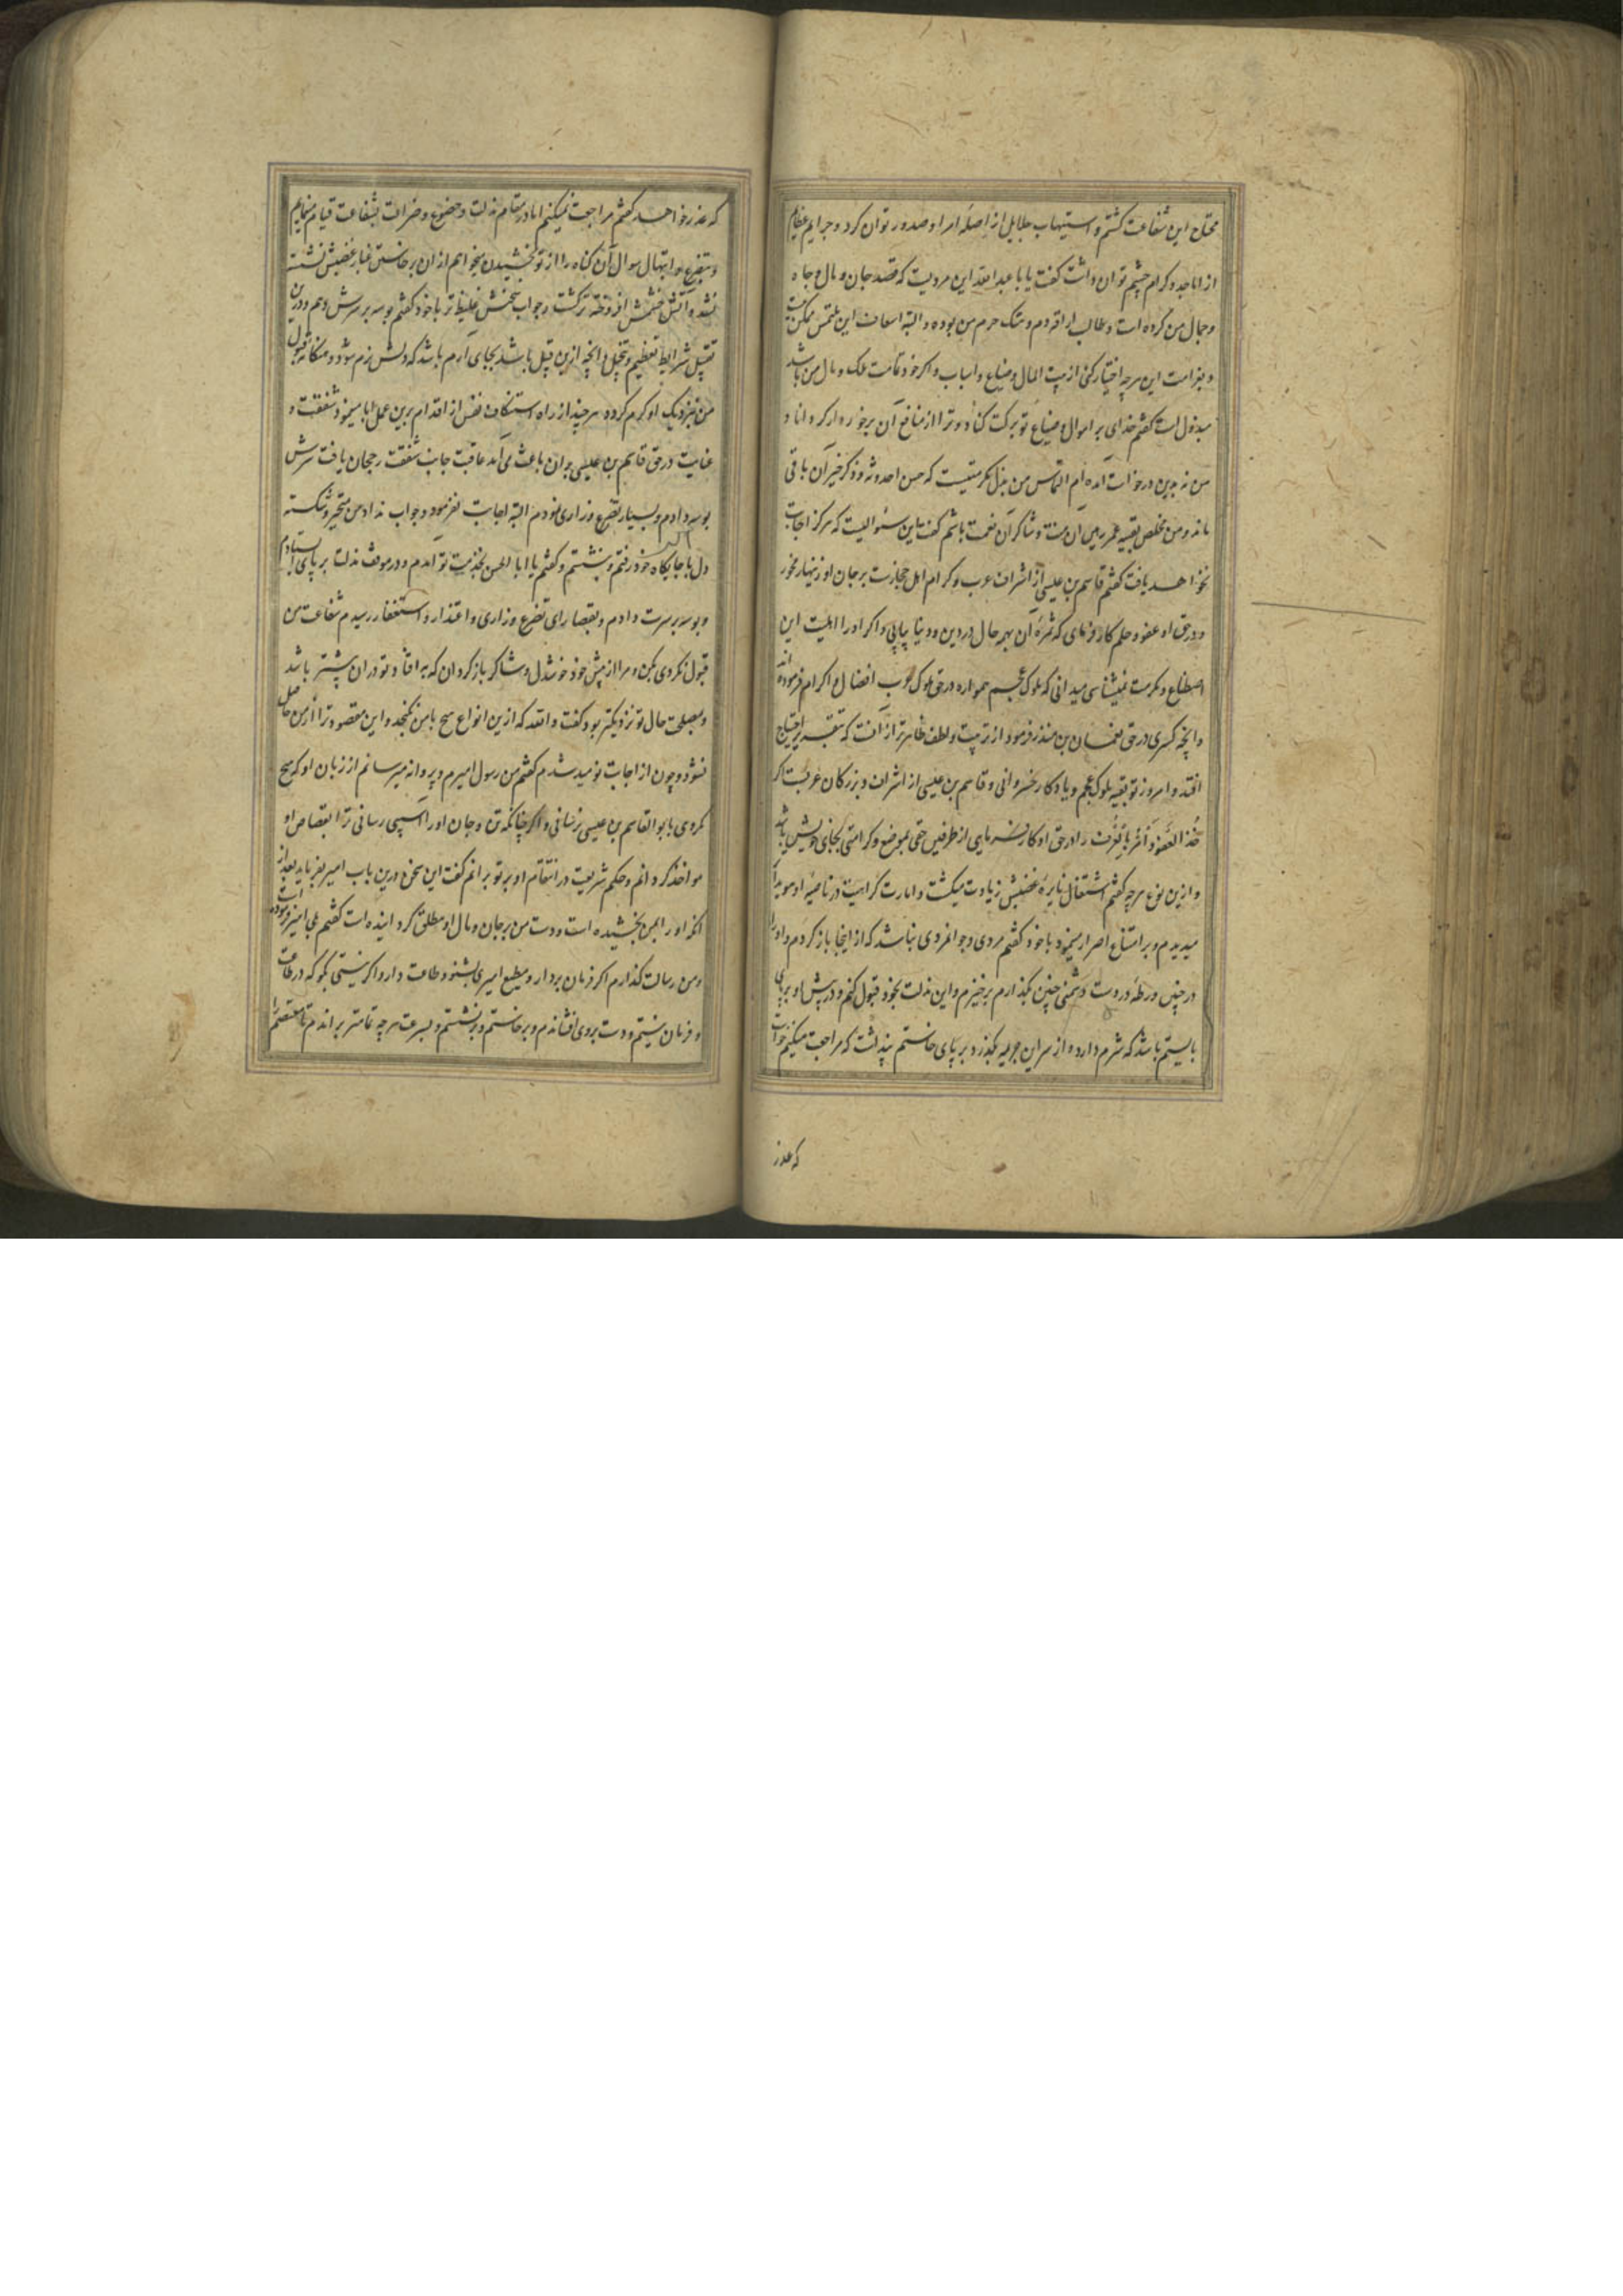 محتاج این شفاعت کشتم و استیهاب جلایل از اصله امرا و صدور توان کرد و جرایم عظایم
از اماجد و کرام چشم توان داشت کفت یا با عبدالله این مردیست که قصد جان و مال و جاه
و جمال من کرده است و طالب اراقه دم و هتک حرم من بوده و البته اسعاف این ملتمس ممکن نیست
و بغرامت این هرچه اختیار کنی از بیت المال و ضیاع و اسباب و اکر خود تمامت ملک و مال من باشد
مبذولست کفتم خدای بر اموال و ضیاع تو برکت کناد و ترا از منافع آن برخوردار کرداناد و
من نه بدین درخواست آمده ام التماس من بذل مکرمتیست که حسن احدوثه و ذکر خیر آن باقی
ماند و من مخلص بقیه عمر رهین آن منت و شاکر آن نعمت باشم کفت این سئوالیست که هرکز اجابت
نخواهد یافت کفتم قاسم بن عیسی از اشراف عرب و کرام اهل حجازست بر جان او زنهار مخور
و در حق او عفو و حلم کار فرمای که ثمره آن بهمه حال در دین و دنیا بیابی و اکر او را اهلیت این
اصطناع و مکرمت نمیشناسی میدانی که ملوک عجم همواره در حق ملوک عرب افضال و اکرام فرموده اند
و آنچه کسری در حق نعمان بن منذر فرمود از تربیت و لطف ظاهرتر از آنست که بتقریر احتیاج
افتد و امروز تو بقیه ملوک عجم و یادکار خسروانی و قاسم بن عیسی از اشراف و بزرکان عربست اکر
خذ العفو و أمر بالعرف را در حق او کار فرمایی از طرفین حقی بموضع و کرامتی بجای خویش باشد
و ازین نوع هرچه کفتم اشتعال نایره غضبش زیادت میکشت و امارت کراهیت در ناصیه او هویدا
میدیدم و بر امتناع اصرار مینمود با خود کفتم مردی و جوانمردی نباشد که از اینجا باز کردم و او را
در چنین ورطه در دست دشمنی چنین بکذارم برخیزم و این مذلت بخود قبول کنم و در پیش او بر پای
بایستم باشد که شرم دارد و از سر این جریمه بکذرد بر پای خاستم پنداشت که مراجعت میکنم خواست
که عذر
که عذر خواهد کفتم مراجعت نمیکنم اما در مقام مذلت و خضوع و ضراعت بشفاعت قیام مینمایم
و بتضرع و ابتهال سوال آن کناه را از تو بخشیدن میخواهم از آن برخاستن غبار غضبش نشسته
نشد و آتش خشمش افروخته تر کشت و جواب سخنش غلیظ تر با خود کفتم بوسه بر سرش دهم و درین
تقبیل شرایط تعظیم و تبجیل و آنچه ازین قبیل باشد بجای آرم باشد که دلش نرم شود و مکانه قبول
من بنزدیک او کرم کردد هرچند از راه استنکاف نفس از اقدام برین عمل ابا مینمود شفقت و
عنایت در حق قاسم بن عیسی بر آن باعث می آمد عاقبت جانب شفقت رجحان یافت سرش
بوسه دادم و بسیار تضرع و زاری نمودم البته اجابت نفرمود و جواب نداد من متحیر و شکسته
دل با جایکاه خود رفتم و بنشستم و کفتم یا ابا الحسن بخدمت تو آمدم و در موقف مذلت بر پای ایستادم
و بوسه بر سرت دادم و بقصارای تضرع و زاری و اعتذار و استغفار رسیدم شفاعت من
قبول نکردی بکن و مرا از پیش خود خوشدل و شاکر باز کردان که مرا فایده تو در آن بیشتر باشد
و بمصلحت حال تو نزدیکتر بود کفت والله که ازین انواع هیچ با من نکنجد و این مقصود ترا از من حاصل
نشود و چون از اجابت نومید شدم کفتم من رسول امیرم و پروانه میرسانم از زبان او که هیچ
مکروهی بابوالقاسم بن عیسی نرسانی و اکر چنانکه تن و جان او را آسیبی رسانی ترا بقصاص او
مواخذ کردانم و حکم شریعت در انتقام او بر تو برانم کفت این سخن درین باب امیر بفرماید بعد از
آنکه او را بمن بخشیده است و دست من بر جان و مال او مطلق کردانیده است کفتم بلی امیر فرموده است
و من رسالت کذارم اکر فرمان بردار و مطیع امیری بشنو و طاعت دار و اکر نیستی بکو که در طاعت
و فرمان نیستم و دست بر وی افشاندم و برخاستم و برنشستم و بسرعت هرچه تمامتر براندم تا معتصم را